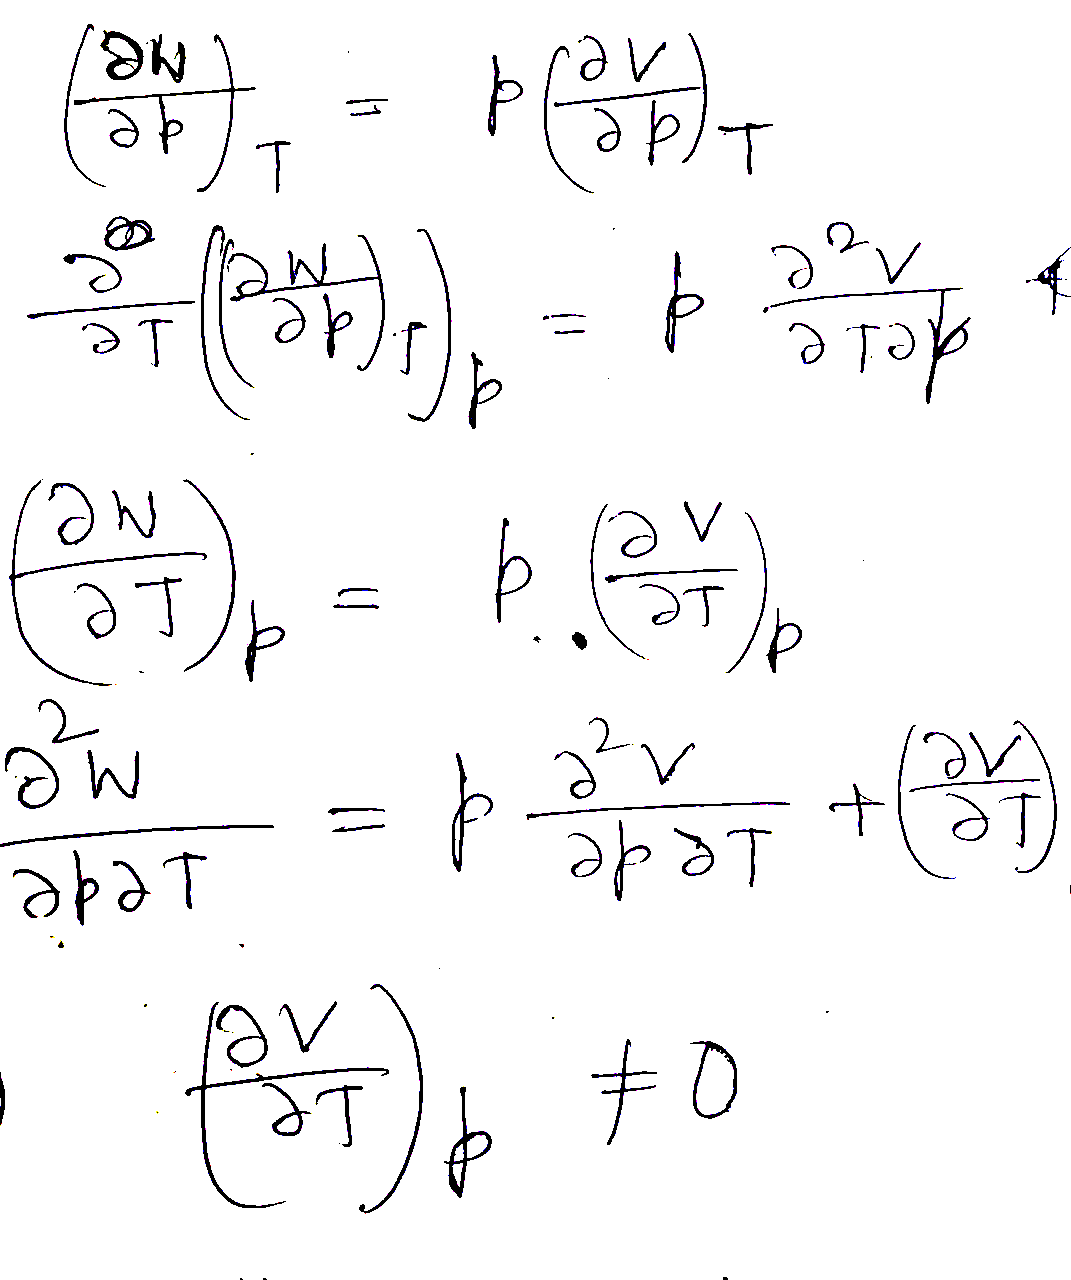 (∂W/∂p)_T = p(∂V/∂p)_T
∂/∂T((∂W/∂p)_T)_p = p ∂²V/∂T∂p
(∂W/∂T)_p = p.(∂V/∂T)_p
∂²W/∂p∂T = p ∂²V/∂p∂T + (∂V/∂T)
(∂V/∂T)_p ≠ 0